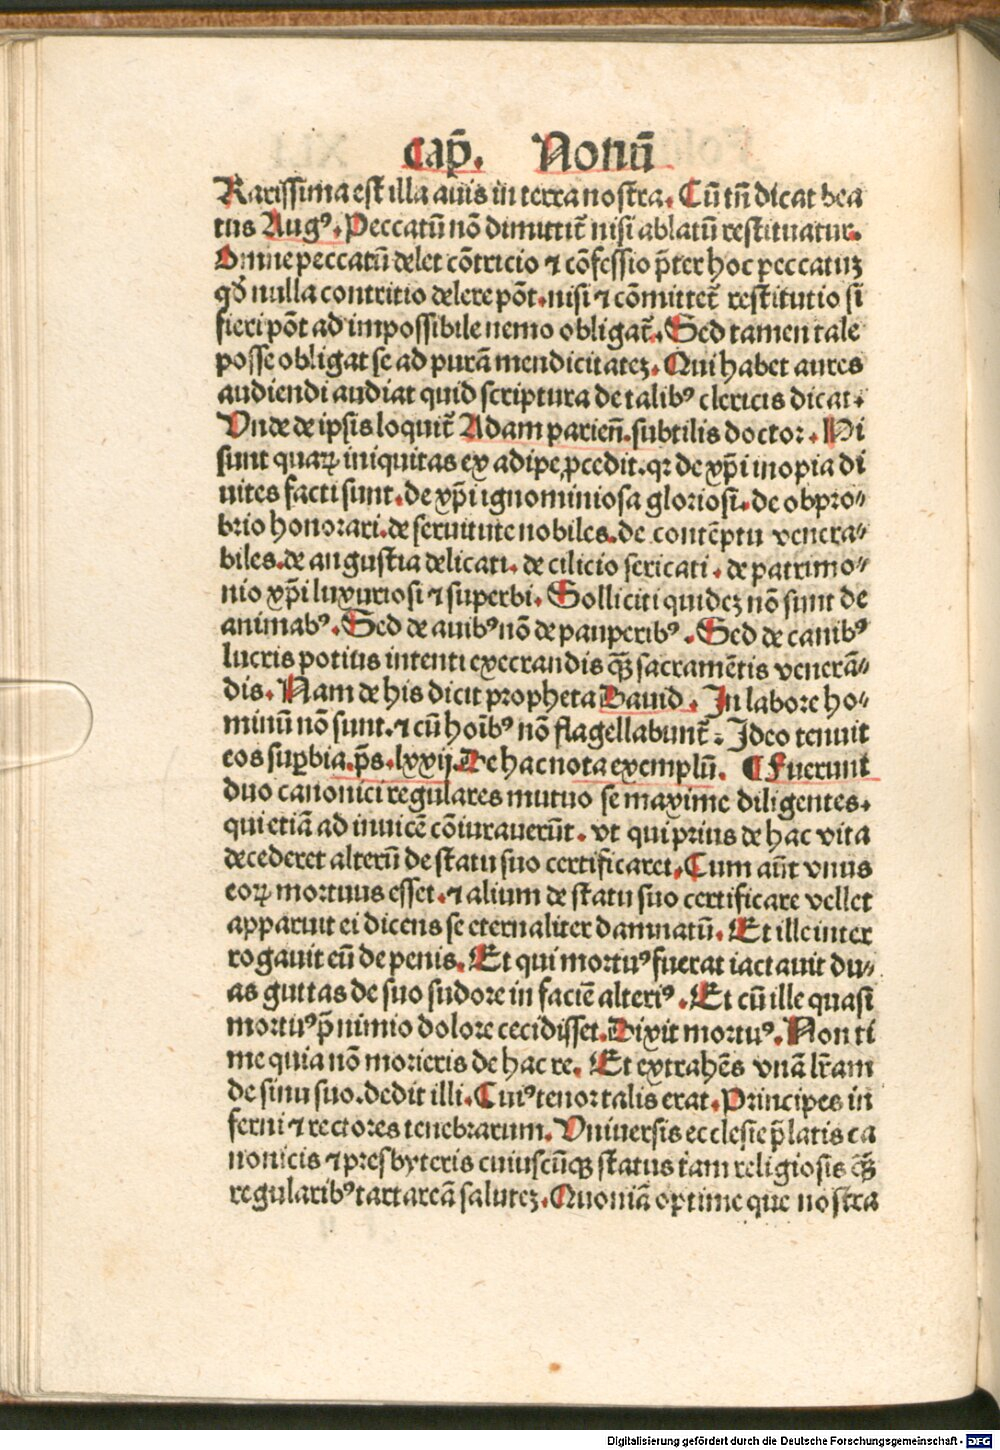 Cap̄. Nonū
Rarissima est illa auis in terra nostra. Cū tn̄ dicat bea
tus Augꝰ. Peccatū nō dimittit̄ nisi ablatū restituatur.
Omne peccatū delet cōtricio ⁊ cōfessio p̄ter hoc peccatuꝫ
qd̄ nulla contritio delere pōt. nisi ⁊ cōmittet̄ restitutio si
fieri pōt ad impossibile nemo obligat̄. Sed tamen tale
posse obligat se ad purā mendicitateꝫ. Qui habet aures
audiendi audiat quid scriptura de talibꝰ clericis dicat.
Vnde de ipsis loquit̄ Adam parien̄. subtilis doctor. Hi
sunt quaꝝ iniquitas ex adipe ꝓcedit. qꝛ de xp̄i inopia di
uites facti sunt. de xp̄i ignominiosa gloriosi. de obpro⸗
brio honorari. de seruitute nobiles. de contēptu venera⸗
biles. de angustia delicati. de cilicio sericati. de patrimo⸗
nio xp̄i luxuriosi ⁊ superbi. Solliciti quideꝫ nō sunt de
animabꝰ. Sed de auibꝰ nō de pauperibꝰ. Sed de canibꝰ
lucris potius intenti execrandis qꝫ̄ sacramētis venerā⸗
dis. Nam de his dicit propheta Dauid. In labore ho⸗
minū nō sunt. ⁊ cū hoībꝰ nō flagellabunt̄. Ideo tenuit
eos suꝑbia. p̄s. lxxij. De hac nota exemplū. ¶ Fuerunt
duo canonici regulares mutuo se maxime diligentes.
qui etiā ad inuicē cōiurauerūt. vt qui prius de hac vita
decederet alterū de statu suo certificaret. Cum aūt vnus
eoꝝ mortuus esset. ⁊ alium de statu suo certificare vellet
apparuit ei dicens se eternaliter damnatū. Et ille inter
rogauit eū de penis. Et qui mortuꝰ fuerat iactauit du⸗
as guttas de suo sudore in faciē alteriꝰ. Et cū ille quasi
mortuꝰ p̄ nimio dolore cecidisset. Dixit mortuꝰ. Non ti
me quia nō morieris de hac re. Et extrahēs vnā lr̄am
de sinu suo. dedit illi. Cuiꝰ tenor talis erat. Principes in
ferni ⁊ rectores tenebrarum. Vniuersis ecclesie p̄latis ca
nonicis ⁊ presbyteris cuiuscūqꝫ status tam religiosis qꝫ̄
regularibꝰ tartareā saluteꝫ. Quoniā optime que nostra
Digitalisierung gefördert durch die Deutsche Forschungsgemeinschaft - DFG